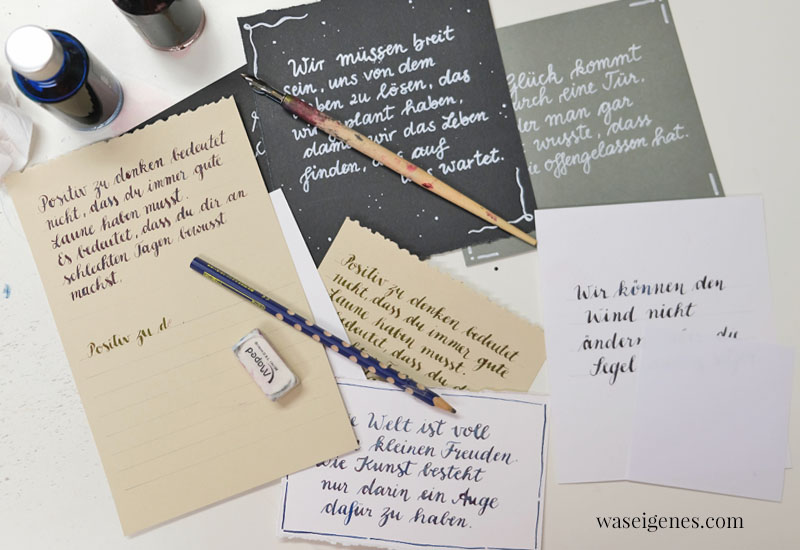 Positiv zu denken bedeutet
nicht, dass du immer gute
Laune haben musst.
Es bedeutet, dass du dir an
schlechten Tagen bewusst
machst.
Positiv zu de
Wir müssen breit
sein, uns von dem
zu lösen, das
wir geplant haben,
wir das Leben
finden, auf
wartet.
Glück kommt
durch eine Tür,
der man gar
wusste, dass
sie offengelassen hat.
Positiv zu denken bedeutet
nicht, dass du immer gute
Laune haben musst.
bedeutet dass du d
schlechten
Wir können den
Wind nicht
ändern
du
Segel
Maped
Welt ist voll
kleinen Freuden.
Die Kunst besteht
nur darin ein Auge
dafür zu haben.
waseigenes.com